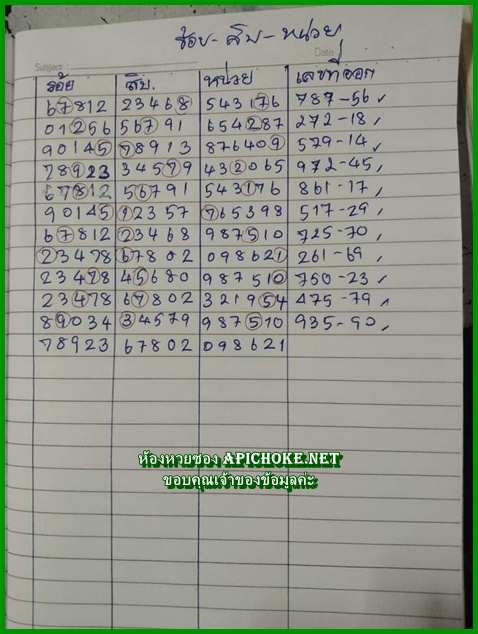 ร้อย - สิบ - หน่วย
Subject : Date
ร้อย สิบ. หน่วย เลขที่ออก
67812 23468 543176 787-56
01256 56791 654287 272-18
90145 78913 876409 579-14
78923 34579 432065 972-45
67812 56791 543176 861-17
90145 12357 765398 517-29
67812 23468 987510 725-70
23478 67802 098621 261-69
23478 45680 987510 750-23
23478 67802 321954 475-79
89034 34579 987510 935-90
78923 67802 098621
ห้องหวยซอง APICHOKE.NET
ขอบคุณเจ้าของข้อมูลค่ะ